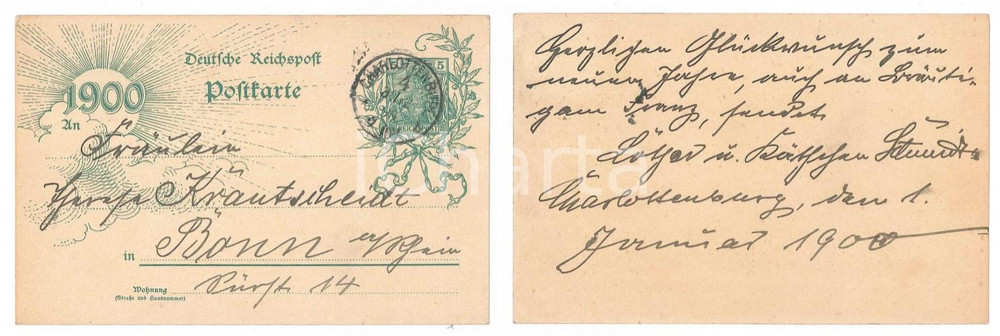 Deutsche Reichspost
Postkarte
5
1900
CHARLOTTENBURG
An
Fräulein
Therese Krautscheidt
in Bonn a/Rhein
Wohnung
(Straße und Hausnummer)
Fürst. 14
Herzlichen Glückwunsch zum
neuen Jahre, auch an Bräuti-
gam Franz, sendet
Lothar u. Käthchen
Charlottenburg, den 1.
Januar 1900